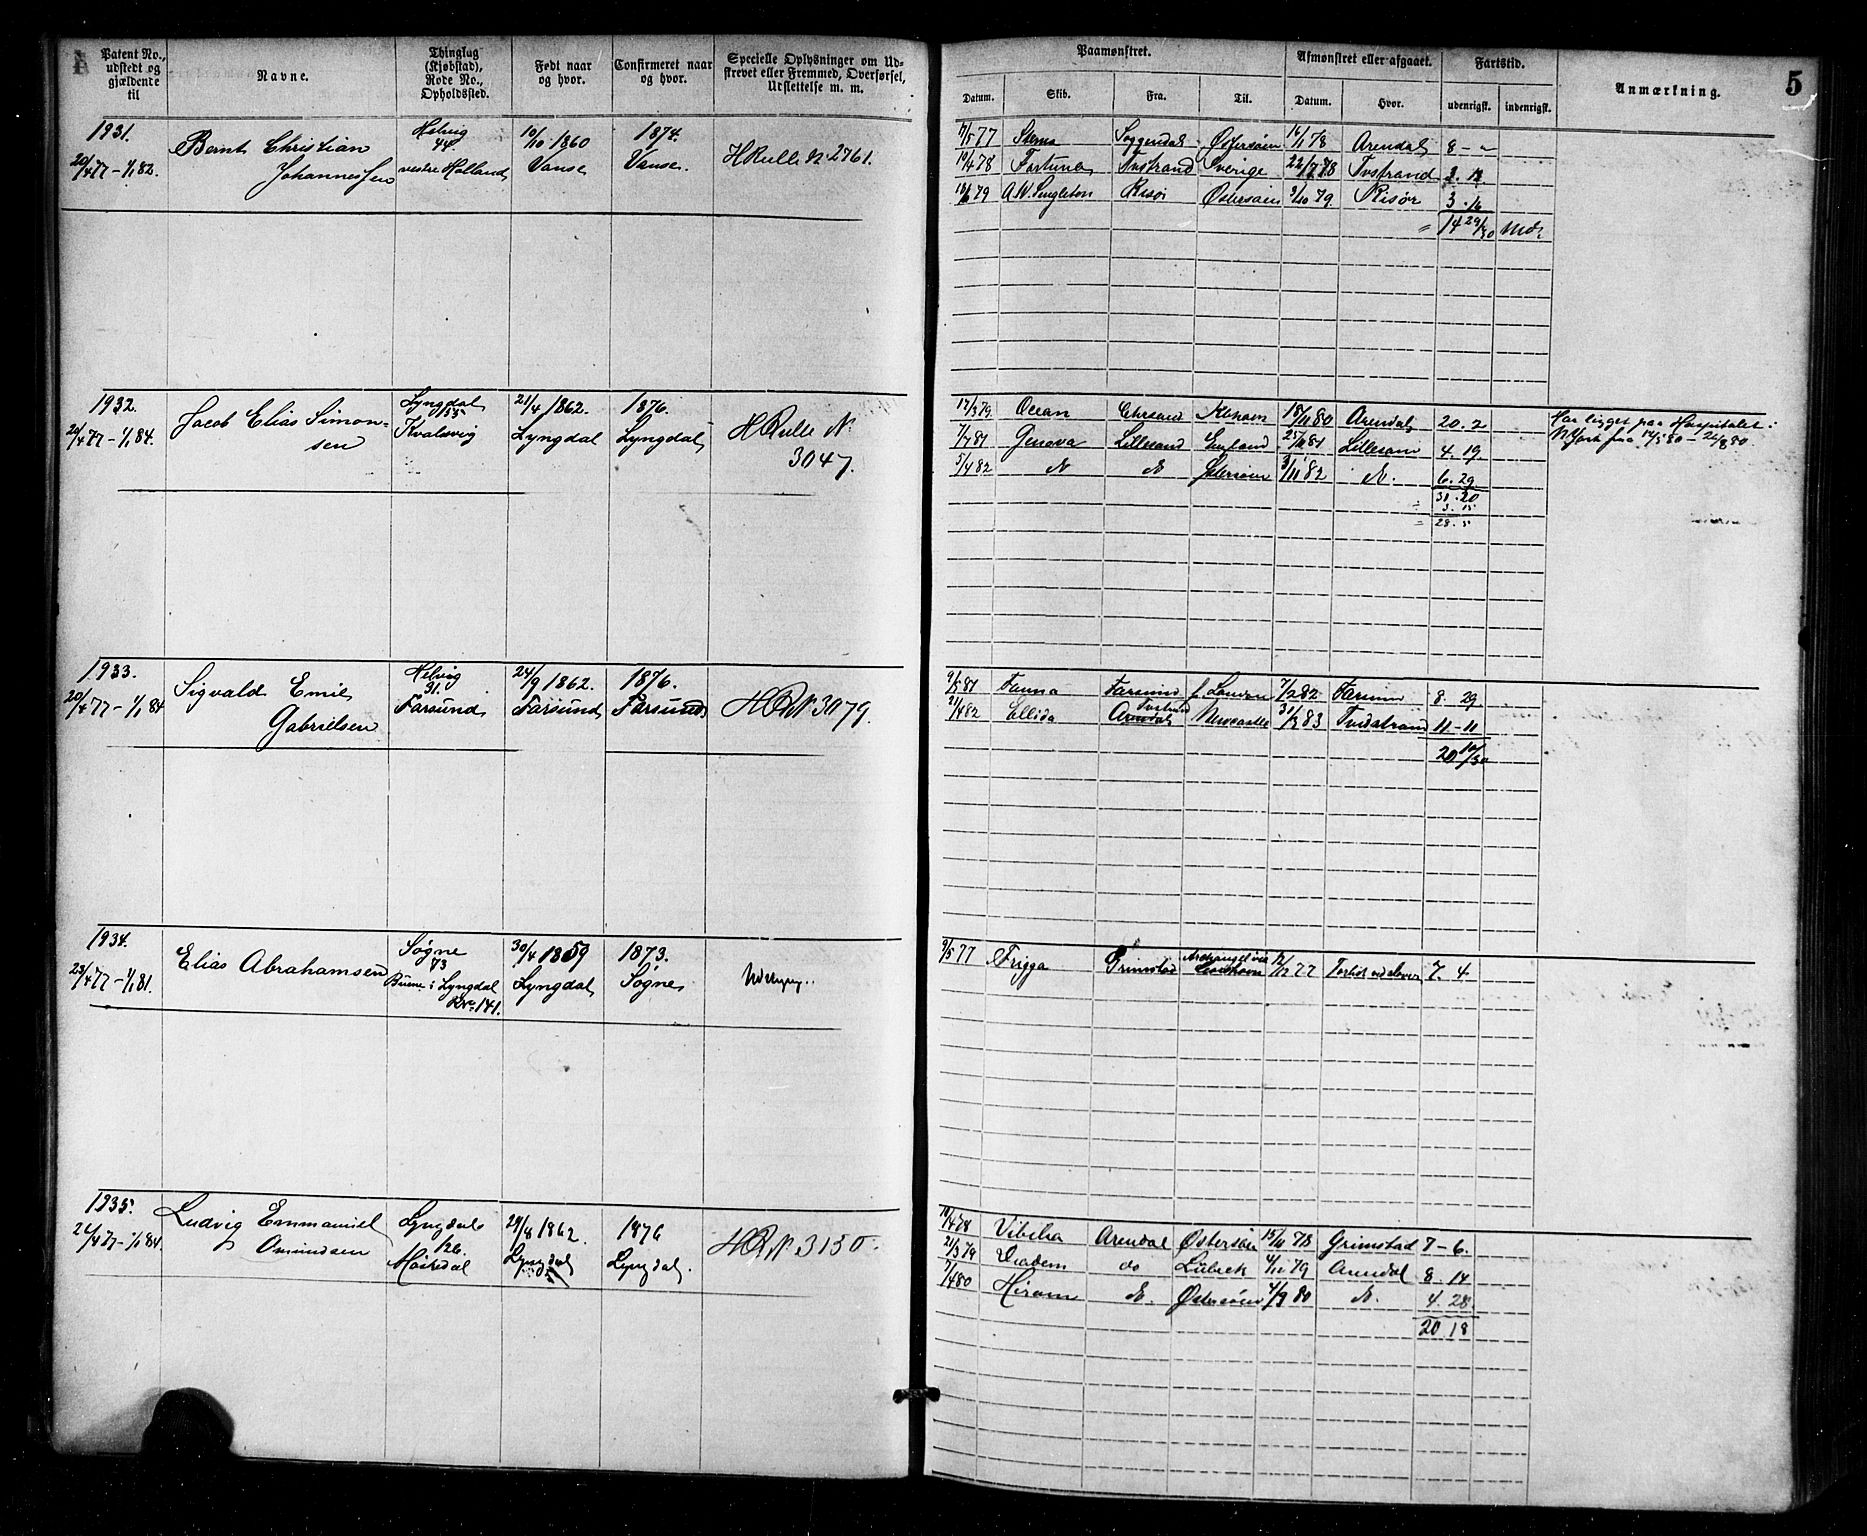 Patent No.,
udstedt og
gjældende
til
Navne.
Thinglag
(Kjøbstad),
Rode No.,
Opholdssted.
Født naar
og hvor.
Confirmeret naar
og hvor.
Specielle Oplysninger om Ud-
skrevet eller Fremmed, Overførsel,
Udslettelse m. m.
Paamønstret.
Afmønstret eller afgaaet.
Fartstid.
Anmærkning.
5
Datum.
Skib.
Fra.
Til.
Datum.
Hvor.
udenrigsk.
indenrigsk.
1931.
20/4 77 - 1/1 82.
Bernt Christian
Johannessen
Helvig
44
vestre Holland
10/10 1860
Vanse
1874.
Vanse.
HRulle N. 2761.
17/5 77 Soggendal Østersøen 16/1 78 Arendal 8 - "
10/4 78 Fortuna Tvstrand Sverige 22/7 78 Tvstrand 3. 13
18/6 79 A W Singleton Risør Østersøen 3/10 79. Risør 3. 16
= 14 29/30 Mdr
1932.
20/4 77 - 1/1 84.
Jacob Elias Simon-
sen
Lyngdal
155
Kvalsvig
21/4 1862.
Lyngdal
1876.
Lyngdal
HRulle N
3047.
17/3 79. Ocean Chrsand Kbhavn 18/11 80 Arendal 20. 2
Har ligget paa Hospitalet i
NYork fra 14/5 80 - 26/8 80.
7/7 81 Geneva Lillesand England 25/11 81 Lillesand 4. 19.
5/4 82 Østersøen 3/11 82 6. 29
31. 20
÷ 3. 15
= 28. 5
1933.
20/4 77 - 1/1 84
Sigvald Emil
Gabrielsen
Helvig
91.
Farsund
24/9 1862.
Farsund
1876.
Farsund
HRN 3079.
9/5 81 Fauna Farsund London 7/2 82 Farsund 8. 29
21/4 82 Ellida Arendal Newcastle 31/3 83 Tvedstrand 11 - 11
20 10/30
1934.
23/4 77 - 1/1 81.
Elias Abrahamsen
Søgne
73
Buene i Lyngdal
R No 141.
30/4 1859
Lyngdal
1873.
Søgne
9/5 77 Frigga Grimstad Archangel via 12/12 77 7. 4
1935.
24/4 77 - 1/1 84.
Ludvig Emmanuel
Omundsen
Lyngdal
126.
Møskedal
29/8 1862.
Lyngdal
1876
Lyngdal.
HRN 3130.
10/4 78 Vibilia Arendal Østersøen 15/11 78 Grimstad 7 - 6.
21/3 79 Diadem do Lübeck 4/12 79 Arendal 8. 14
7/4 80 Hiram Østersøen 4/9 80 4. 28.
20. 18